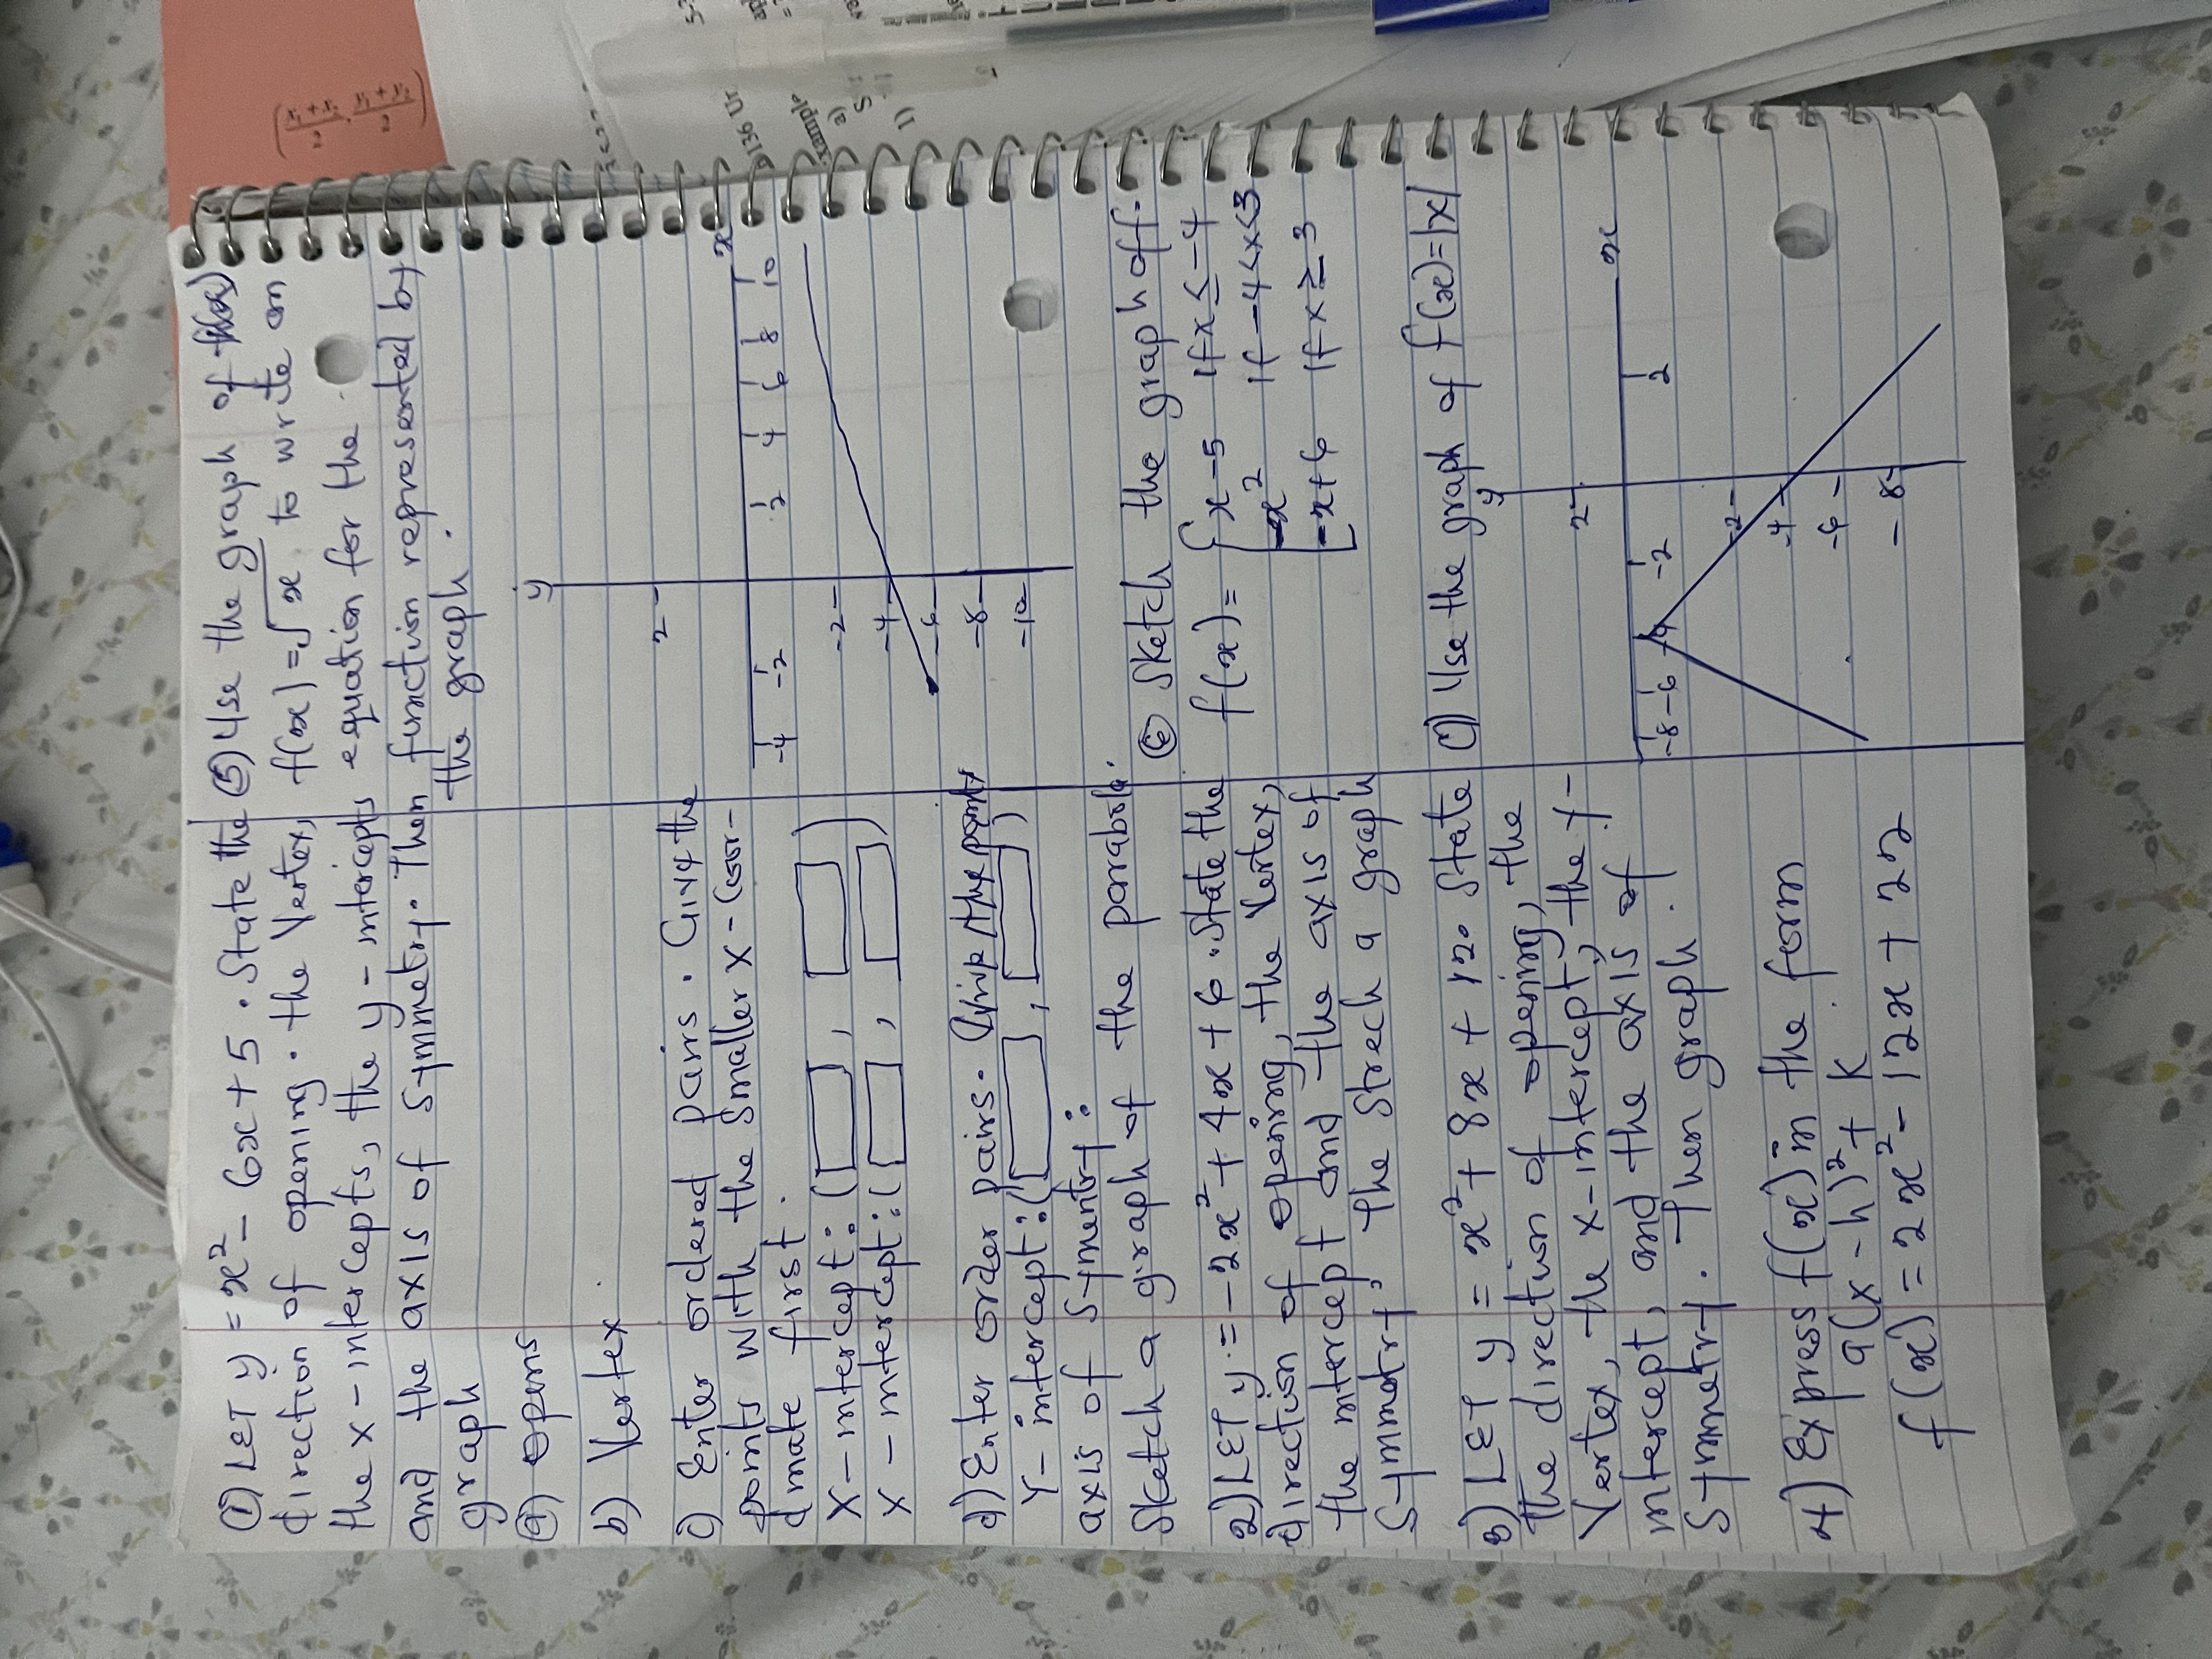 ① LET y = x² - 6x + 5 . State the
direction of opening . the Vertex,
the x - intercepts, the y - intercepts
and the axis of symmetry. Then
graph
a) opens
b) Vertex
c) Enter ordered pairs . Give the
points with the smaller x - coor-
dinate first .
X - intercept : ( , )
X - intercept : ( , )
d) Enter order pairs. Give the points
Y - intercept : ( , )
axis of Symentry :
Sketch a graph of the parabola.
2) LET y = -2x² + 4x + 6 . State the
direction of opening, the Vertex,
the intercept and the axis of
Symmetry, The Strech a graph
3) LET y = x² + 8x + 12. State
the direction of opening, the
Vertex, the x-intercept, the y-
intercept, and the axis of
Symmetry. Then graph .
4) Express f(x) in the form
a(x - h)² + k .
f(x) = 2x² - 12x + 22
⑤ Use the graph of
f(x) = √x to write an
equation for the
function represented by
the graph .
y
2
x
-4 -2 2 4 6 8 10
-2
-4
-6
-8
-10
⑥ Sketch the graph of f.
f(x) = { x - 5 if x ≤ -4
-x² if -4 < x < 3
-x + 6 if x ≥ 3
⑦ Use the graph of f(x) = |x|
y
2
x
-8 -6 -4 -2 2
-2
-4
-6
-8
(x₁ + x₂ / 2 , y₁ + y₂ / 2)
136 Ur
Example
a)
S
1)